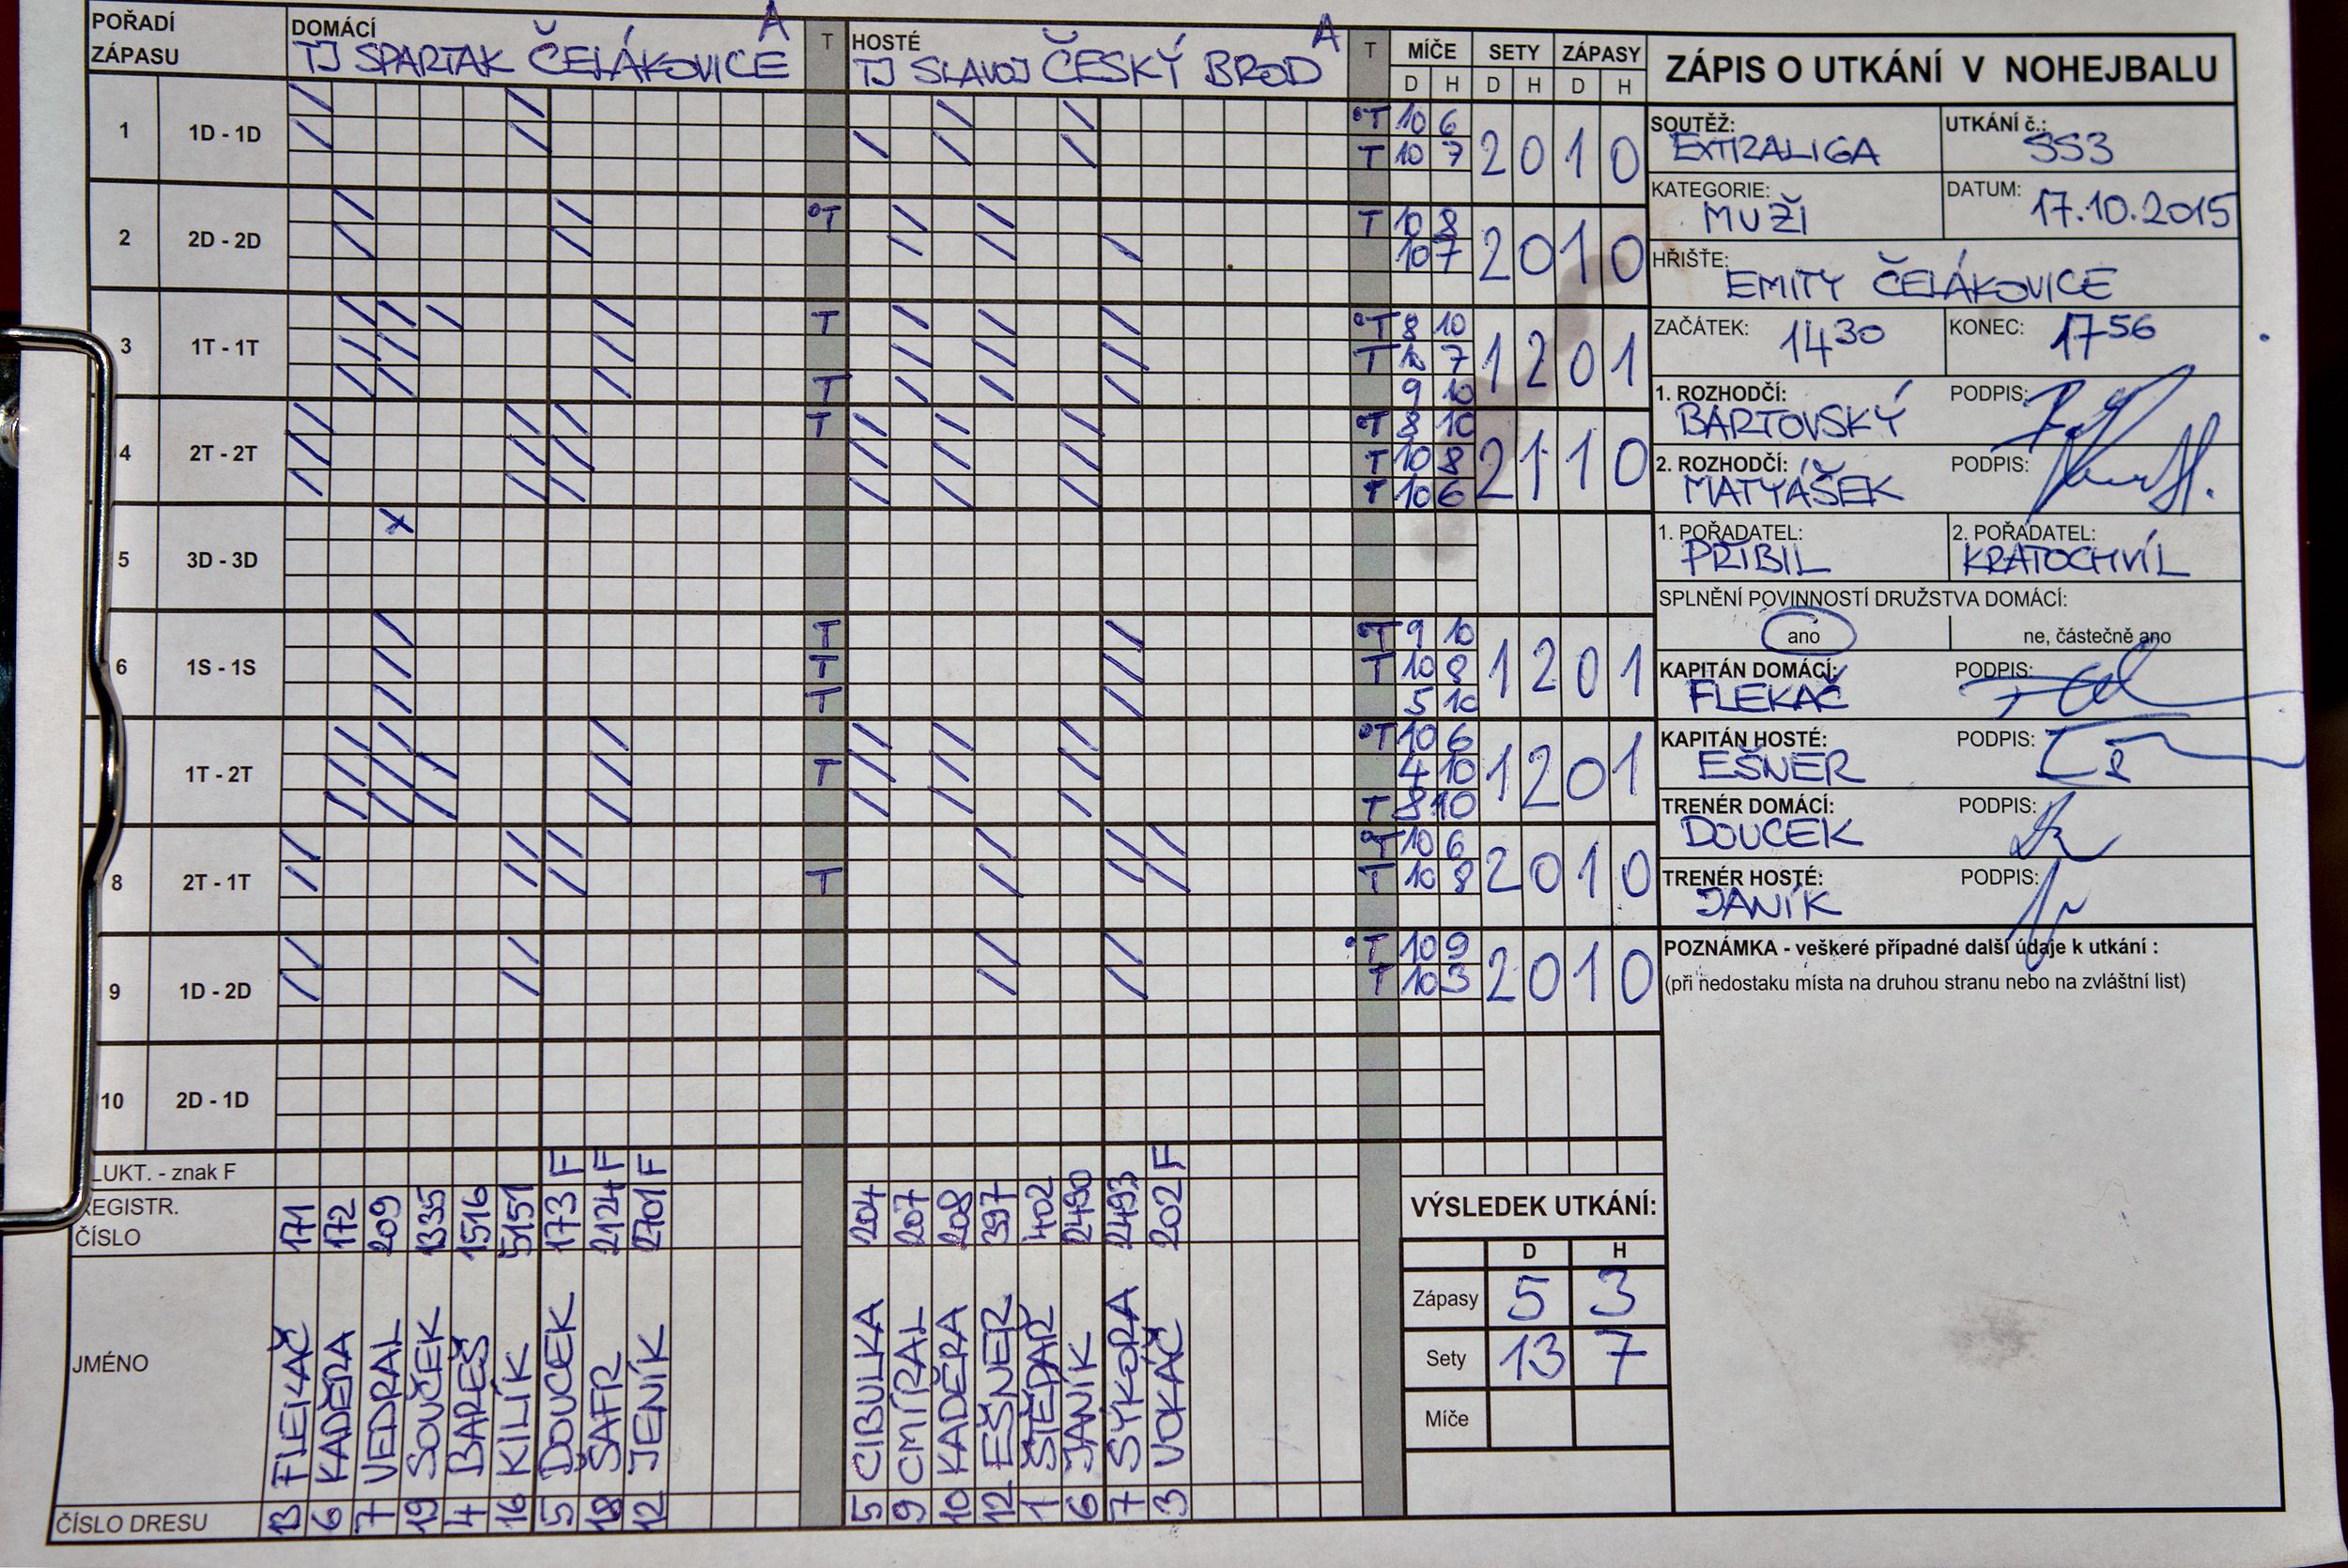 POŘADÍ ZÁPASU
DOMÁCÍ
TJ SPARTAK ČELÁKOVICE A
T
HOSTÉ
TJ SLAVOJ ČESKÝ BROD A
T
MÍČE SETY ZÁPASY
D H D H D H
1 1D - 1D
°T 10 6
T 10 7
2 0 1 0
2 2D - 2D
°T T 10 8
10 7
2 0 1 0
3 1T - 1T
T °T 8 10
T 7
T 9 10
1 2 0 1
4 2T - 2T
T °T 8 10
T 10 8
T 10 6
2 1 1 0
5 3D - 3D
x
6 1S - 1S
T °T 9 10
T T 10 8
T 5 10
1 2 0 1
1T - 2T
°T 10 6
T 4 10
T 8 10
1 2 0 1
8 2T - 1T
°T 10 6
T T 10 8
2 0 1 0
9 1D - 2D
°T 10 9
T 10 3
2 0 1 0
10 2D - 1D
LUKT. - znak F
F F F F
REGISTR. ČÍSLO
171 172 209 1335 1516 5151 173 2124 2701
204 207 208 397 402 2490 2493 202
JMÉNO
FLEKAČ KADĚRA VEDRAL SOUČEK BAREŠ KILÍK DOUCEK ŠAFR JENÍK
CIBULKA CMÍRAL KADĚRA EŠNER ŠTĚPÁŘ JANÍK SÝKORA VOKÁČ
ČÍSLO DRESU
13 6 7 19 4 16 5 18 12
5 9 10 12 1 6 7 3
ZÁPIS O UTKÁNÍ V NOHEJBALU
SOUTĚŽ: EXTRALIGA
UTKÁNÍ č.: SS3
KATEGORIE: MUŽI
DATUM: 17.10.2015
HŘIŠTĚ: EMITY ČELÁKOVICE
ZAČÁTEK: 14 30
KONEC: 17 56
1. ROZHODČÍ: BARTOVSKÝ
PODPIS:
2. ROZHODČÍ: MATYÁŠEK
PODPIS:
1. POŘADATEL: PŘIBIL
2. POŘADATEL: KRATOCHVÍL
SPLNĚNÍ POVINNOSTÍ DRUŽSTVA DOMÁCÍ:
ano
ne, částečně ano
KAPITÁN DOMÁCÍ: FLEKAČ
PODPIS:
KAPITÁN HOSTÉ: EŠNER
PODPIS:
TRENÉR DOMÁCÍ: DOUCEK
PODPIS:
TRENÉR HOSTÉ: JANÍK
PODPIS:
POZNÁMKA - veškeré případné další údaje k utkání :
(při nedostaku místa na druhou stranu nebo na zvláštní list)
VÝSLEDEK UTKÁNÍ:
D H
Zápasy 5 3
Sety 13 7
Míče